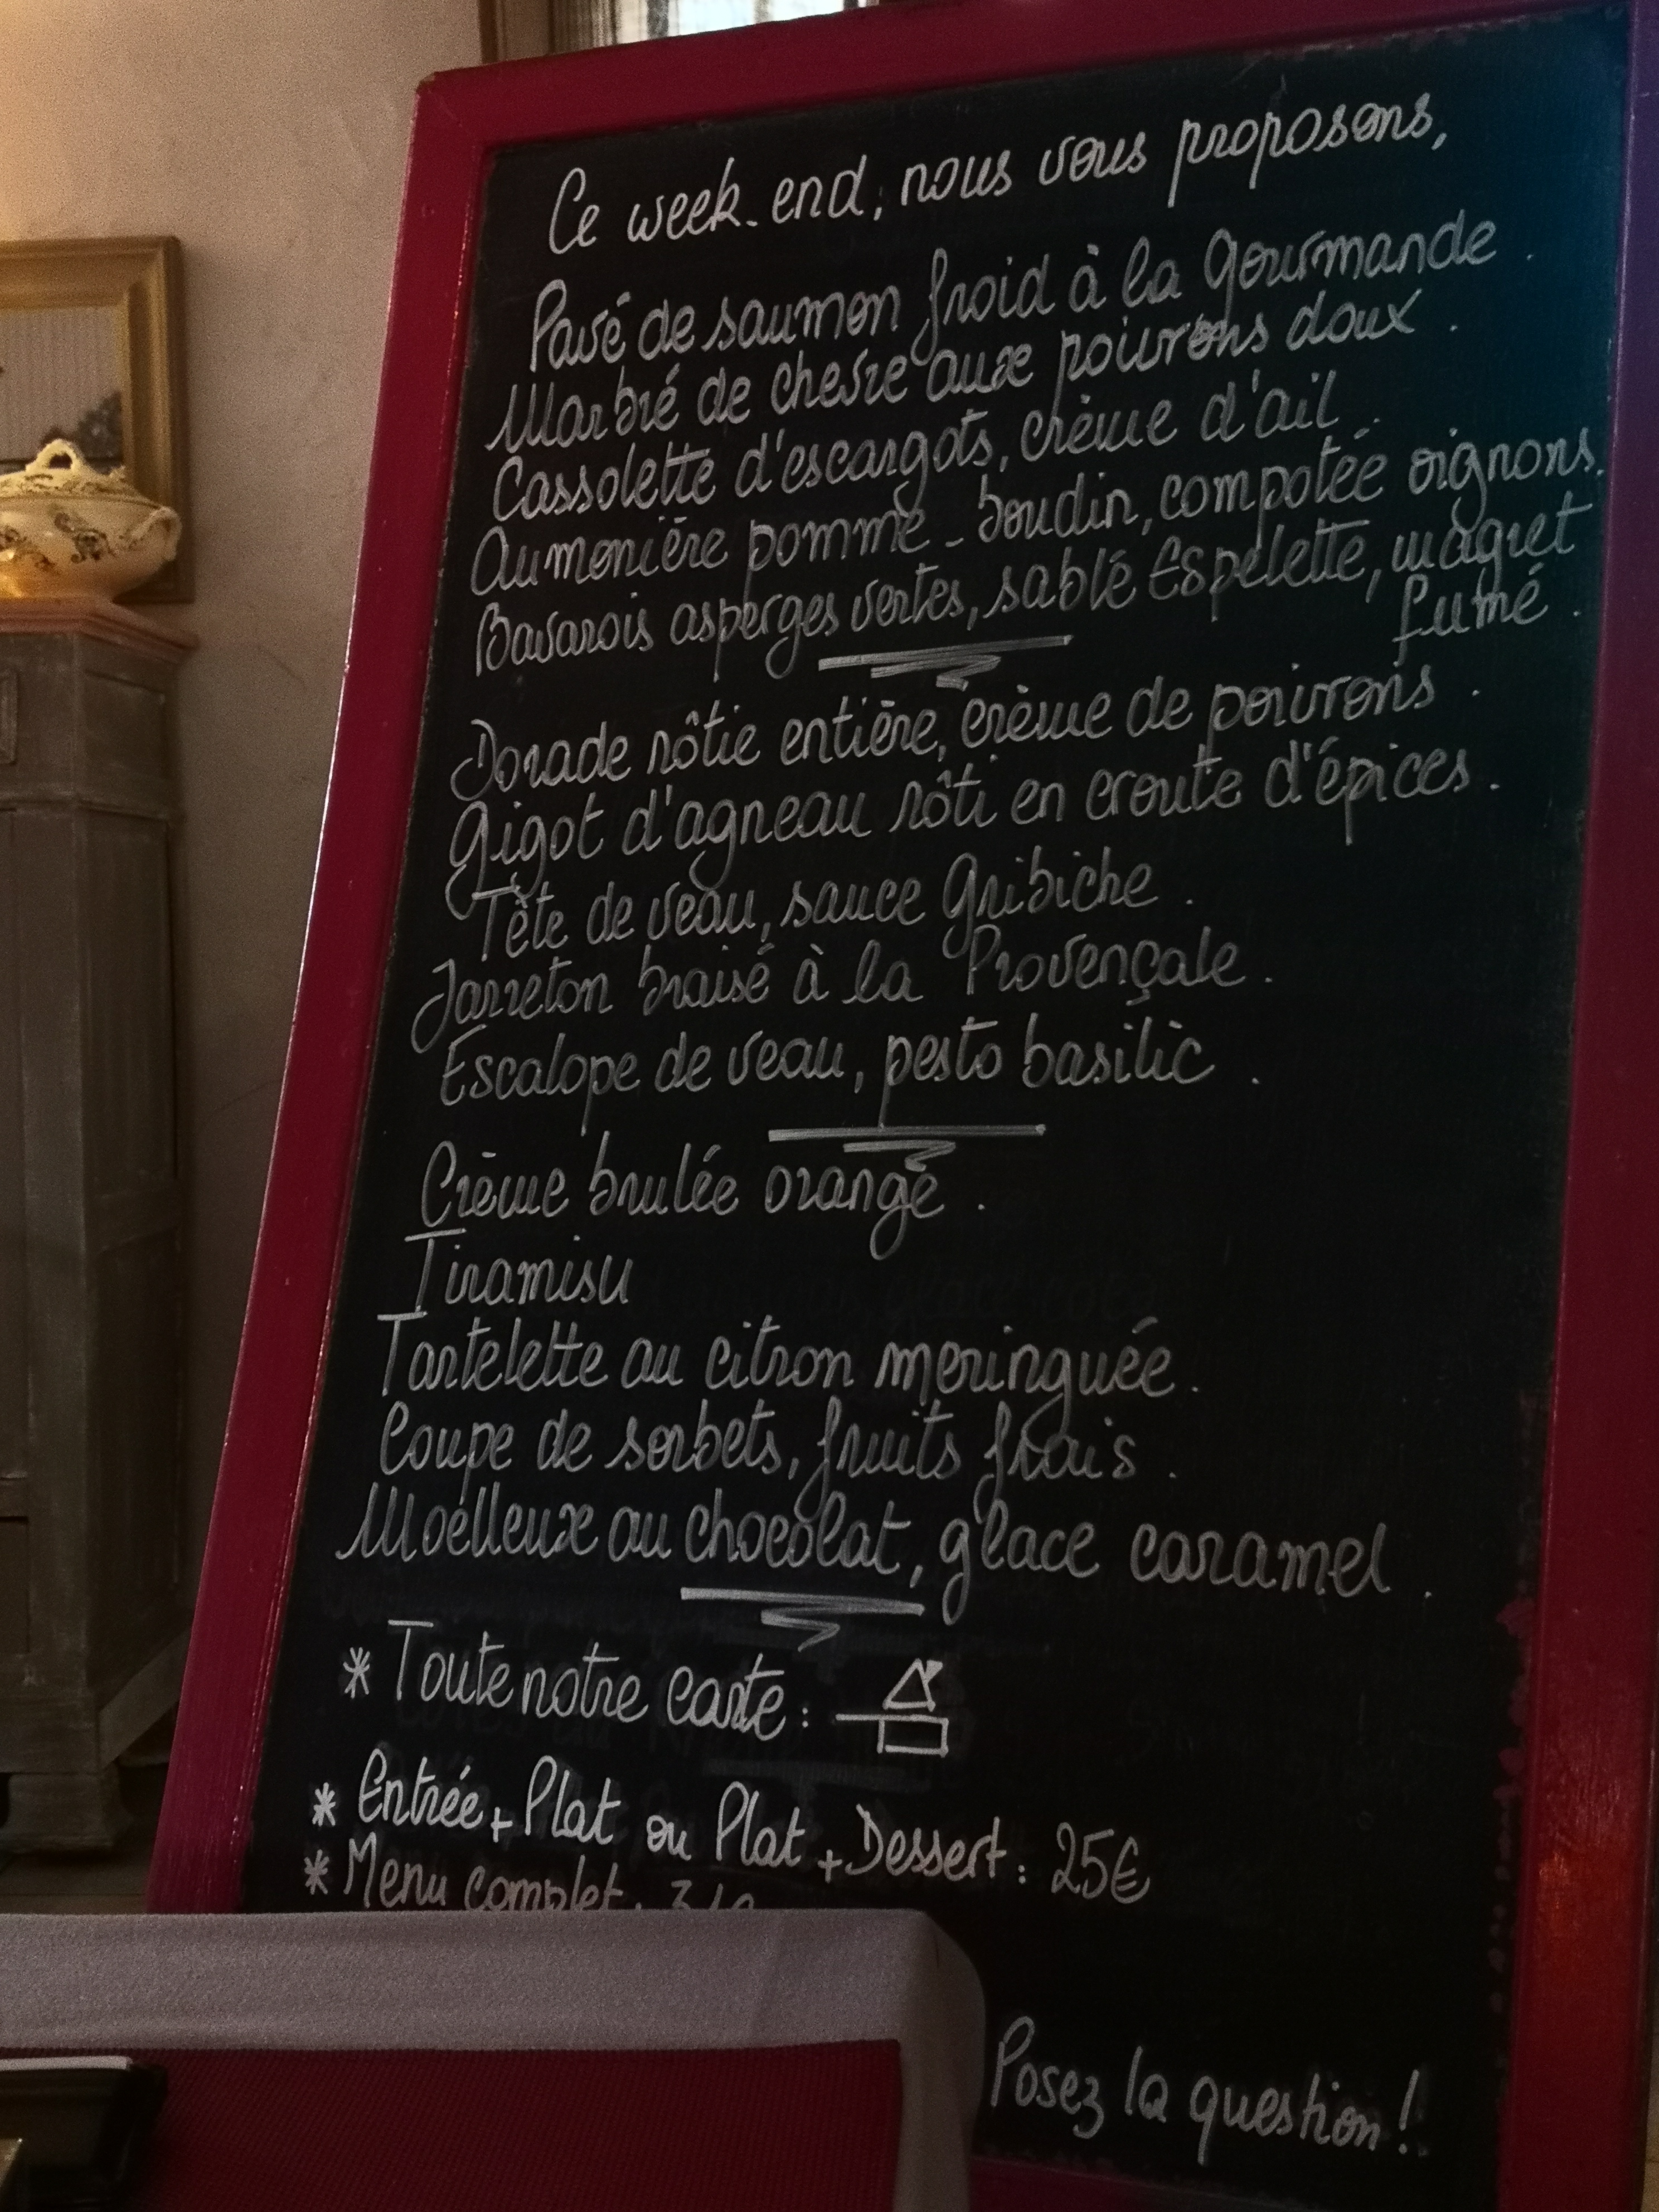 Ce week-end, nous vous proposons,
Pavé de saumon froid à la Gourmande.
Marbré de chevre aux poivrons doux.
Cassolette d'escargots, crème d'ail.
Aumonière pomme-boudin, compotée oignons.
Bavarois asperges vertes, sablé Espelette, magret
fumé.
Dorade rôtie entière, crème de poivrons.
Gigot d'agneau rôti en croute d'épices.
Tête de veau, sauce Gribiche.
Jarreton braisé à la Provençale.
Escalope de veau, pesto basilic.
Crème brulée orange.
Tiramisu
Tartelette au citron meringuée.
Coupe de sorbets, fruits frais.
Moelleux au chocolat, glace caramel.
* Toute notre carte :
* Entrée + Plat ou Plat + Dessert : 25€
* Menu complet :
Posez la question !